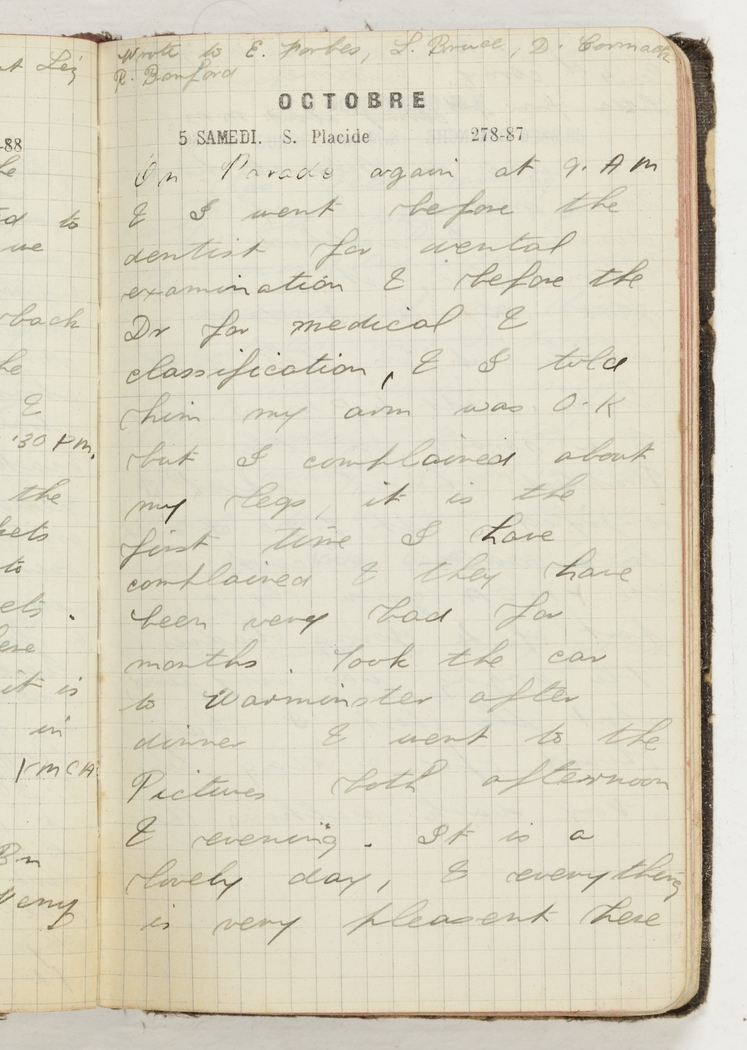 Wrote to E. Forbes, L. Bruce, D. Cormack
R. Banford
OCTOBRE
5 SAMEDI. S. Placide 278-87
On Parade again at 9. AM
& I went before the
dentist for dental
examination & before the
Dr for medical &
classification, & I told
him my arm was O.K
but I complained about
my legs, it is the
first time I have
complained & they have
been very bad for
months. Took the car
to Warminster after
dinner & went to the
Pictures both afternoon
& evening. It is a
lovely day, & everything
is very pleasent here
-88
he
to
we
back
he
&
.30 PM.
the
to
it is
in
YMCA
Bn